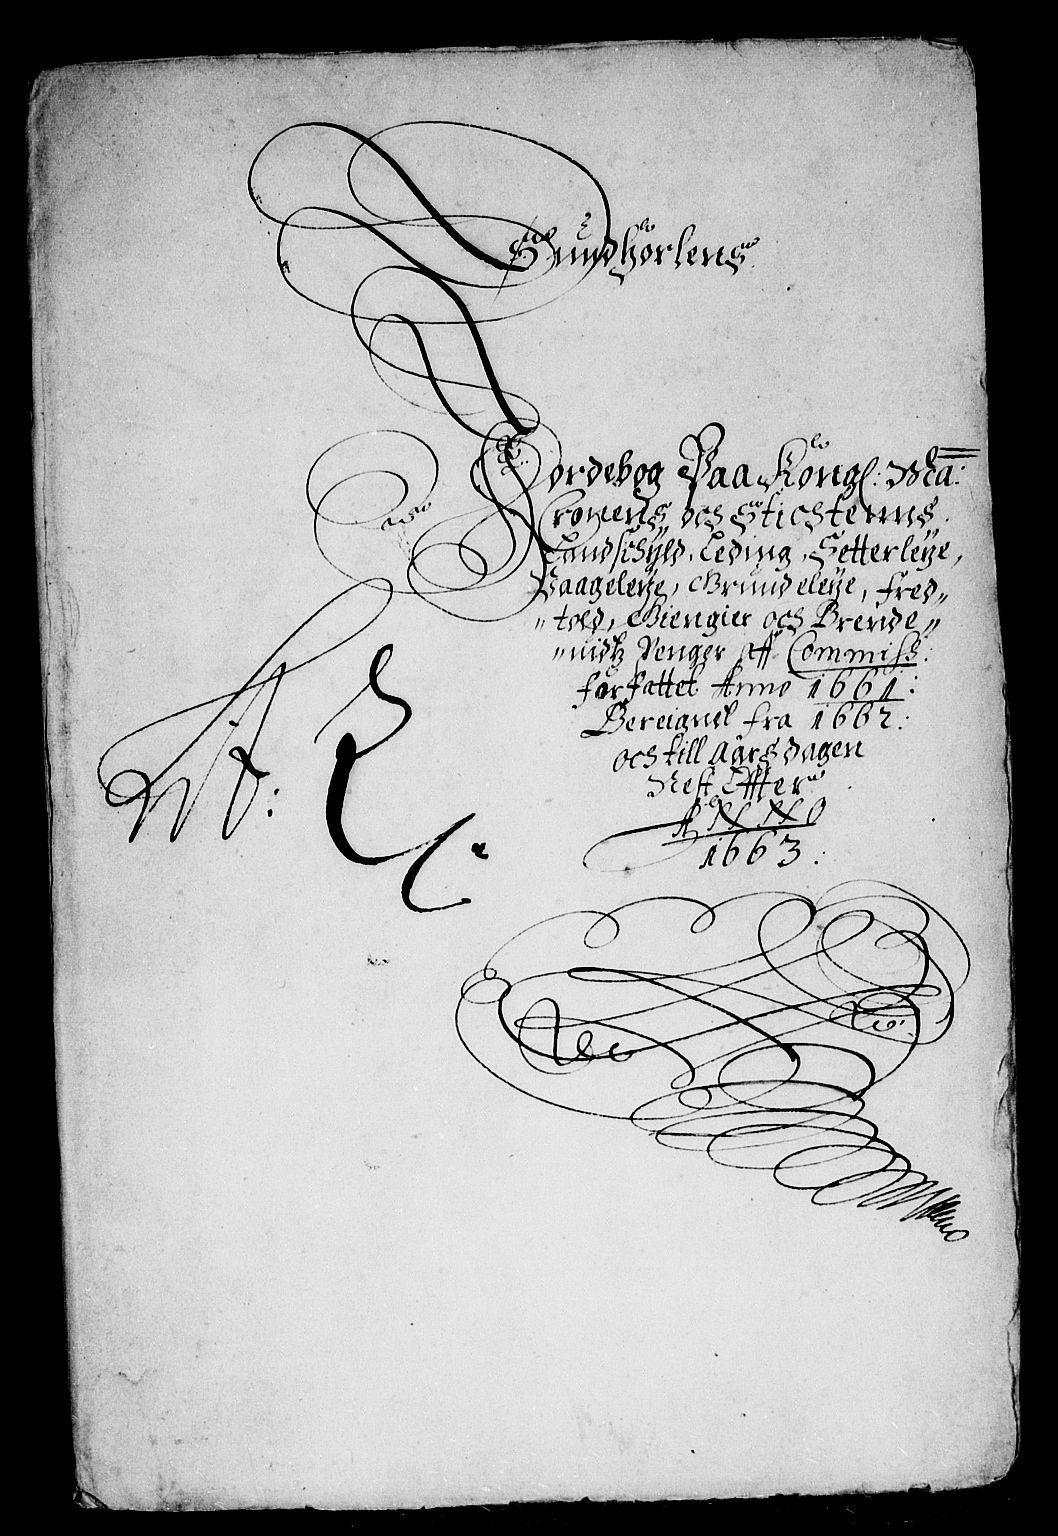 Sundhorlens
Jordebog Paa Kongl: Ma:
Cronens och Stictens
Landschyld, Leding, Setterleye,
Vaageleye, Grundeleye, Fred„
„told, Giengier och Brende„
„nidtz Penger aff Commiss:
forfattet Anno 1661:
Bereignet fra 1662:
och till Aars dagen
Nest Effter
ANNO
1663: